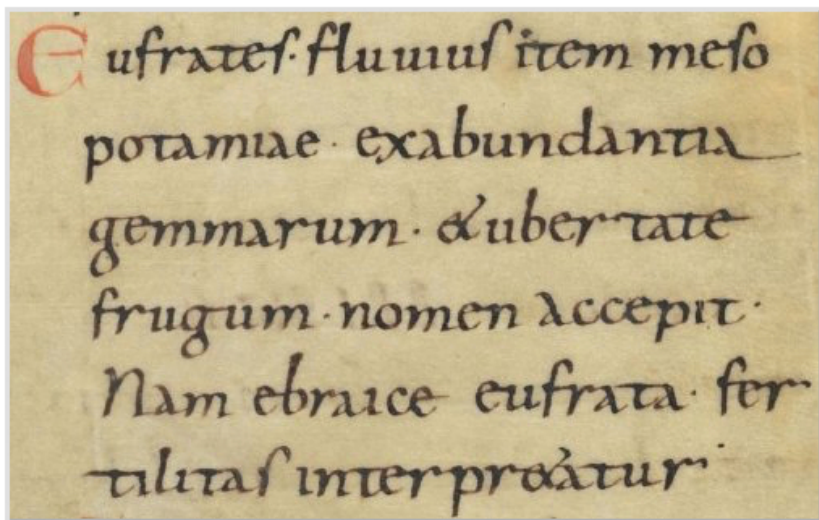 Eufrates· fluuius item meso
potamiae· exabundantia
gemmarum· & ubertate
frugum· nomen accepit·
Nam ebraice eufrata· fer
tilitas interpr&atur·